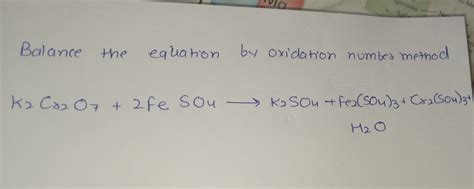 Balance the equation by oxidation number method
K2 Cr2 O7 + 2Fe SO4 → K2SO4 + Fe2(SO4)3 + Cr2(SO4)3 +
H2O